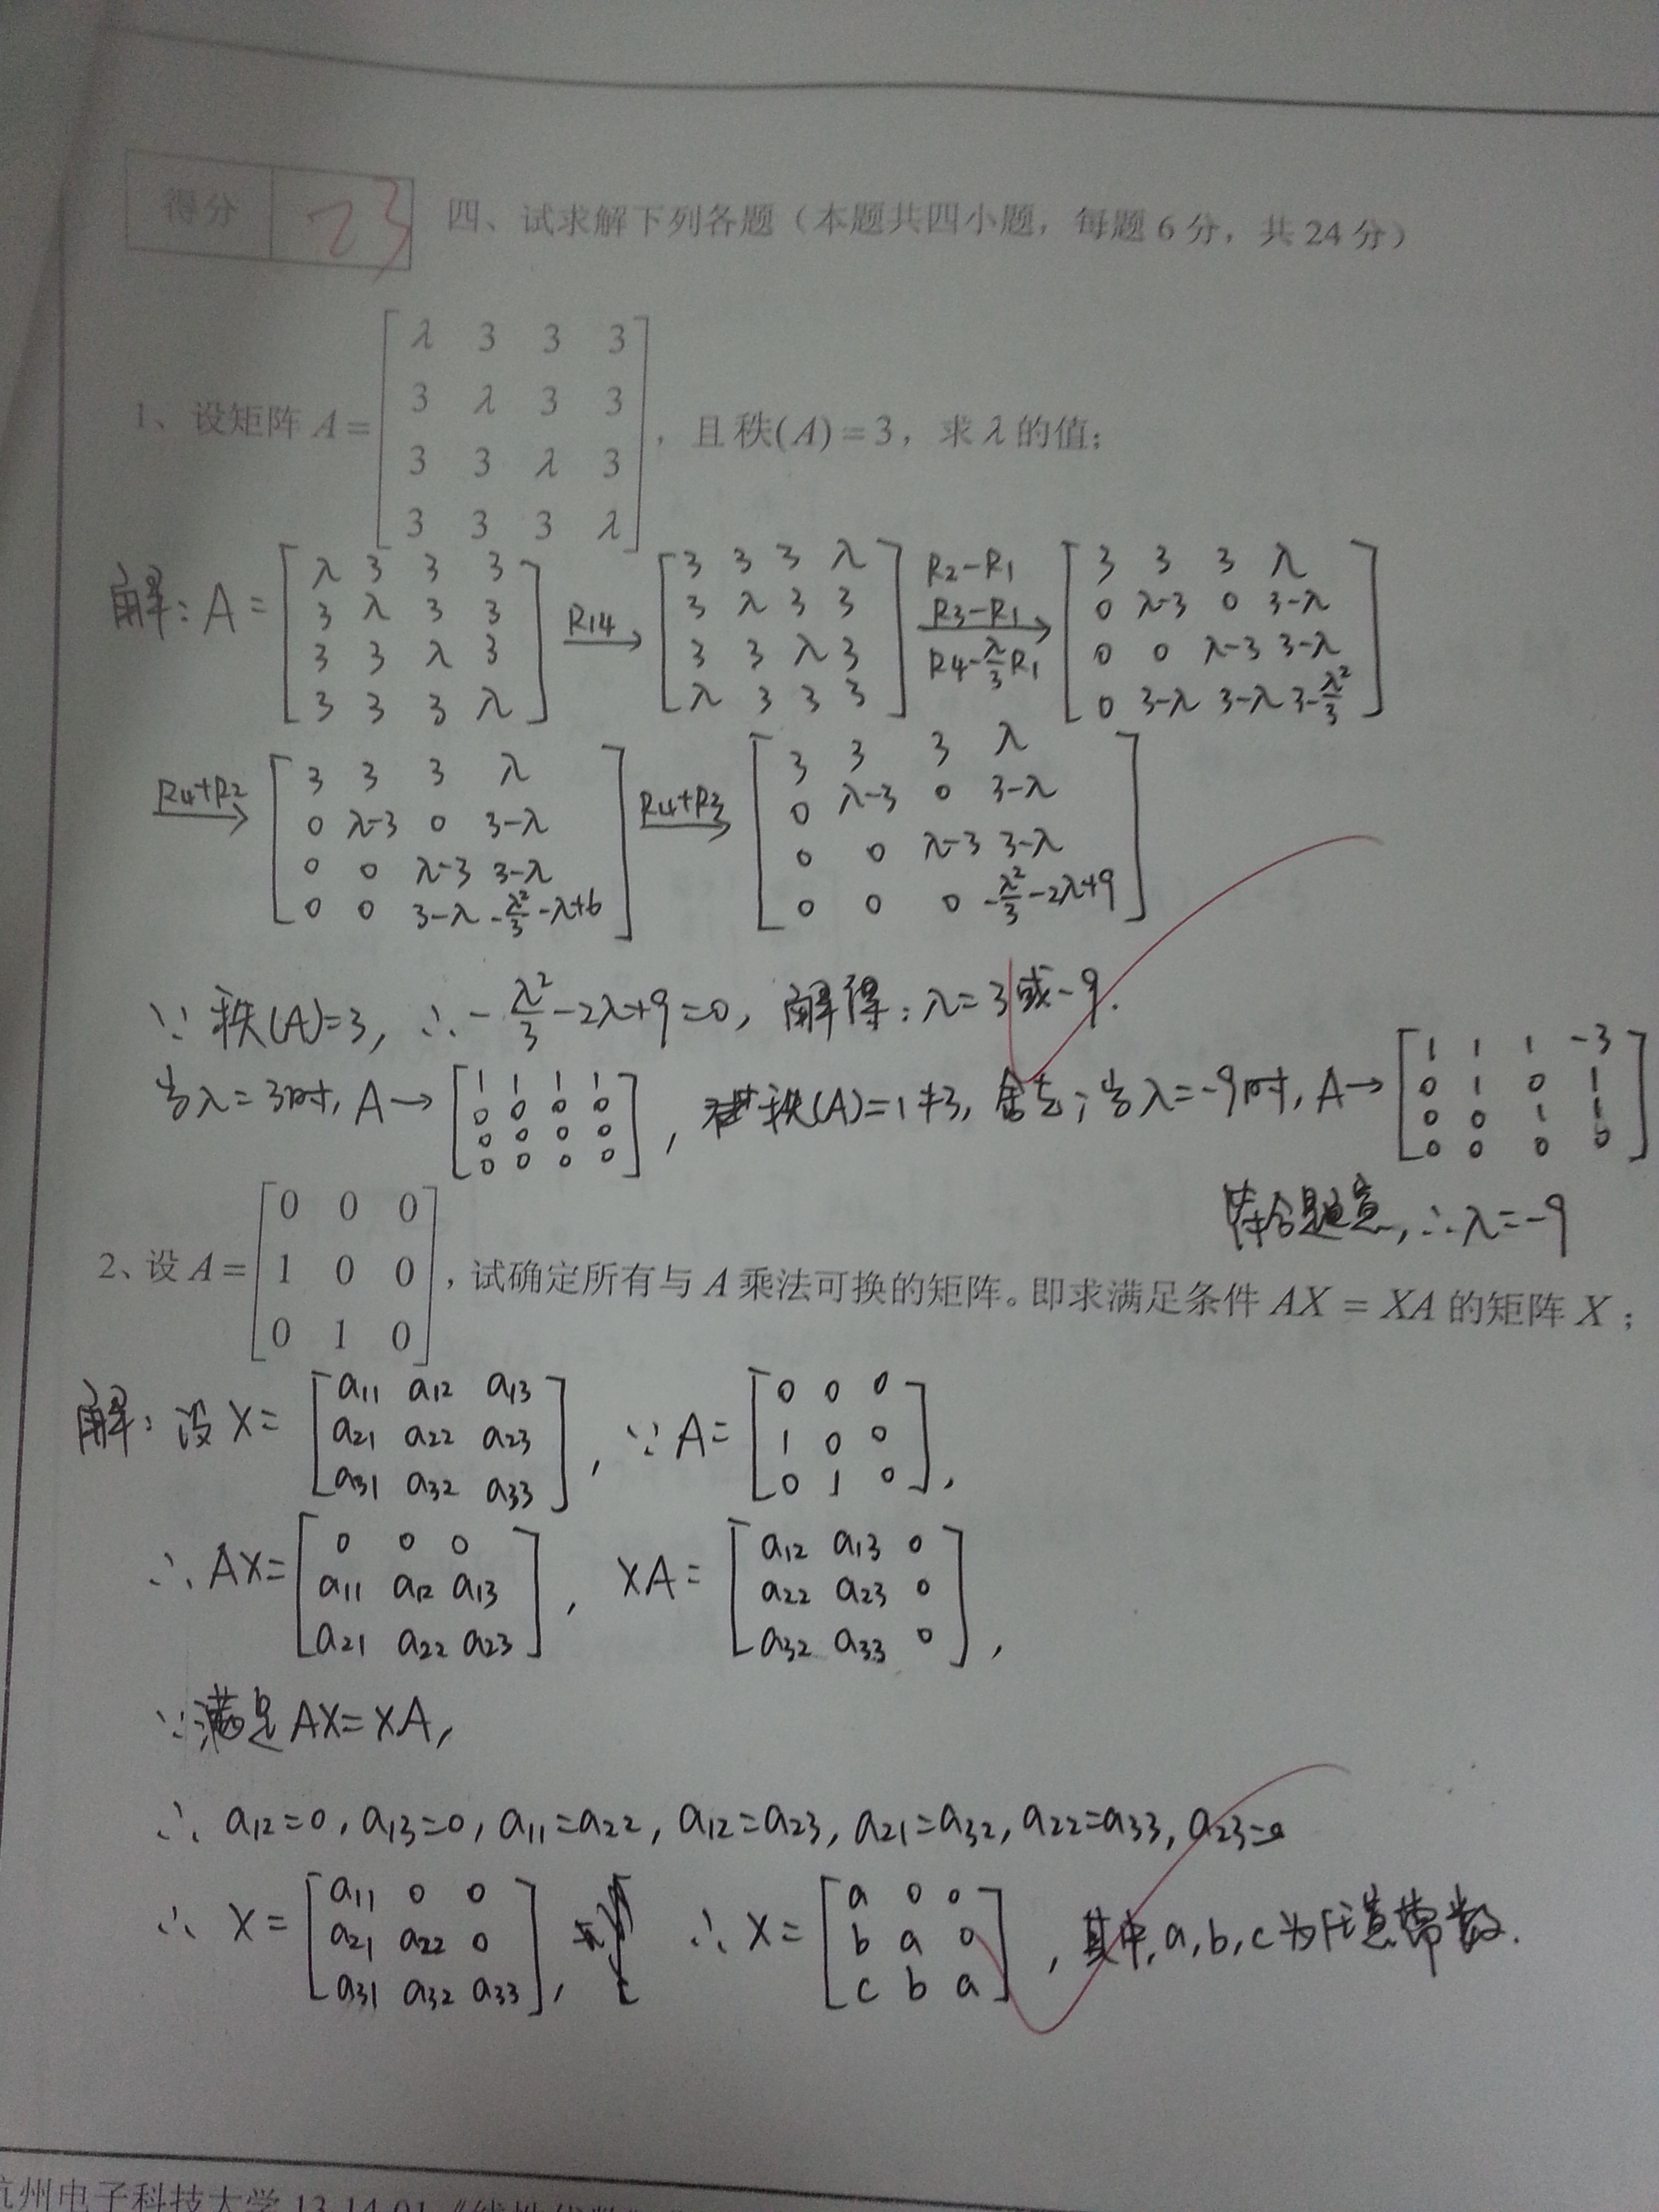 得分 23 四、试求解下列各题（本题共四小题，每题 6 分，共 24 分）
1、设矩阵 A = [λ 3 3 3; 3 λ 3 3; 3 3 λ 3; 3 3 3 λ]，且秩(A) = 3，求 λ 的值；
解：A = [λ 3 3 3; 3 λ 3 3; 3 3 λ 3; 3 3 3 λ] R14→ [3 3 3 λ; 3 λ 3 3; 3 3 λ 3; λ 3 3 3] R2-R1 R3-R1 R4-λ/3R1→ [3 3 3 λ; 0 λ-3 0 3-λ; 0 0 λ-3 3-λ; 0 3-λ 3-λ 3-λ²/3]
R4+R2→ [3 3 3 λ; 0 λ-3 0 3-λ; 0 0 λ-3 3-λ; 0 0 3-λ -λ²/3-λ+6] R4+R3→ [3 3 3 λ; 0 λ-3 0 3-λ; 0 0 λ-3 3-λ; 0 0 0 -λ²/3-2λ+9]
∵ 秩(A)=3, ∴ -λ²/3-2λ+9=0, 解得：λ=3或-9.
当λ=3时, A→ [1 1 1 1; 0 0 0 0; 0 0 0 0; 0 0 0 0], 秩(A)=1≠3, 舍去；当λ=-9时, A→ [1 1 1 -3; 0 1 0 1; 0 0 1 1; 0 0 0 0]
符合题意, ∴λ=-9
2、设 A = [0 0 0; 1 0 0; 0 1 0]，试确定所有与 A 乘法可换的矩阵。即求满足条件 AX = XA 的矩阵 X；
解：设 X = [a11 a12 a13; a21 a22 a23; a31 a32 a33], ∵ A = [0 0 0; 1 0 0; 0 1 0],
∴ AX = [0 0 0; a11 a12 a13; a21 a22 a23], XA = [a12 a13 0; a22 a23 0; a32 a33 0],
∵满足 AX=XA,
∴ a12=0, a13=0, a11=a22, a12=a23, a21=a32, a22=a33, a23=0
∴ X = [a11 0 0; a21 a22 0; a31 a32 a33], ∴ X = [a 0 0; b a 0; c b a], 其中, a, b, c 为任意常数.
杭州电子科技大学 13-14-01《线性代数》